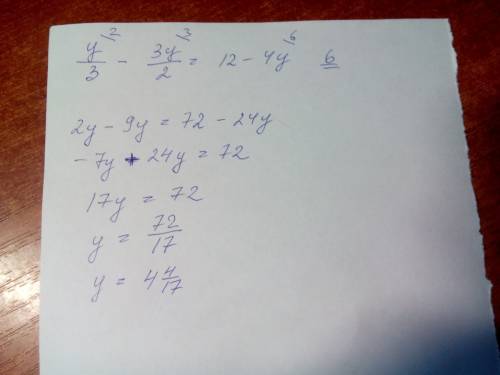 y/3 /2 - 3y/2 /3 = 12 - 4y /6 6
2y - 9y = 72 - 24y
-7y + 24y = 72
17y = 72
y = 72/17
y = 4 4/17